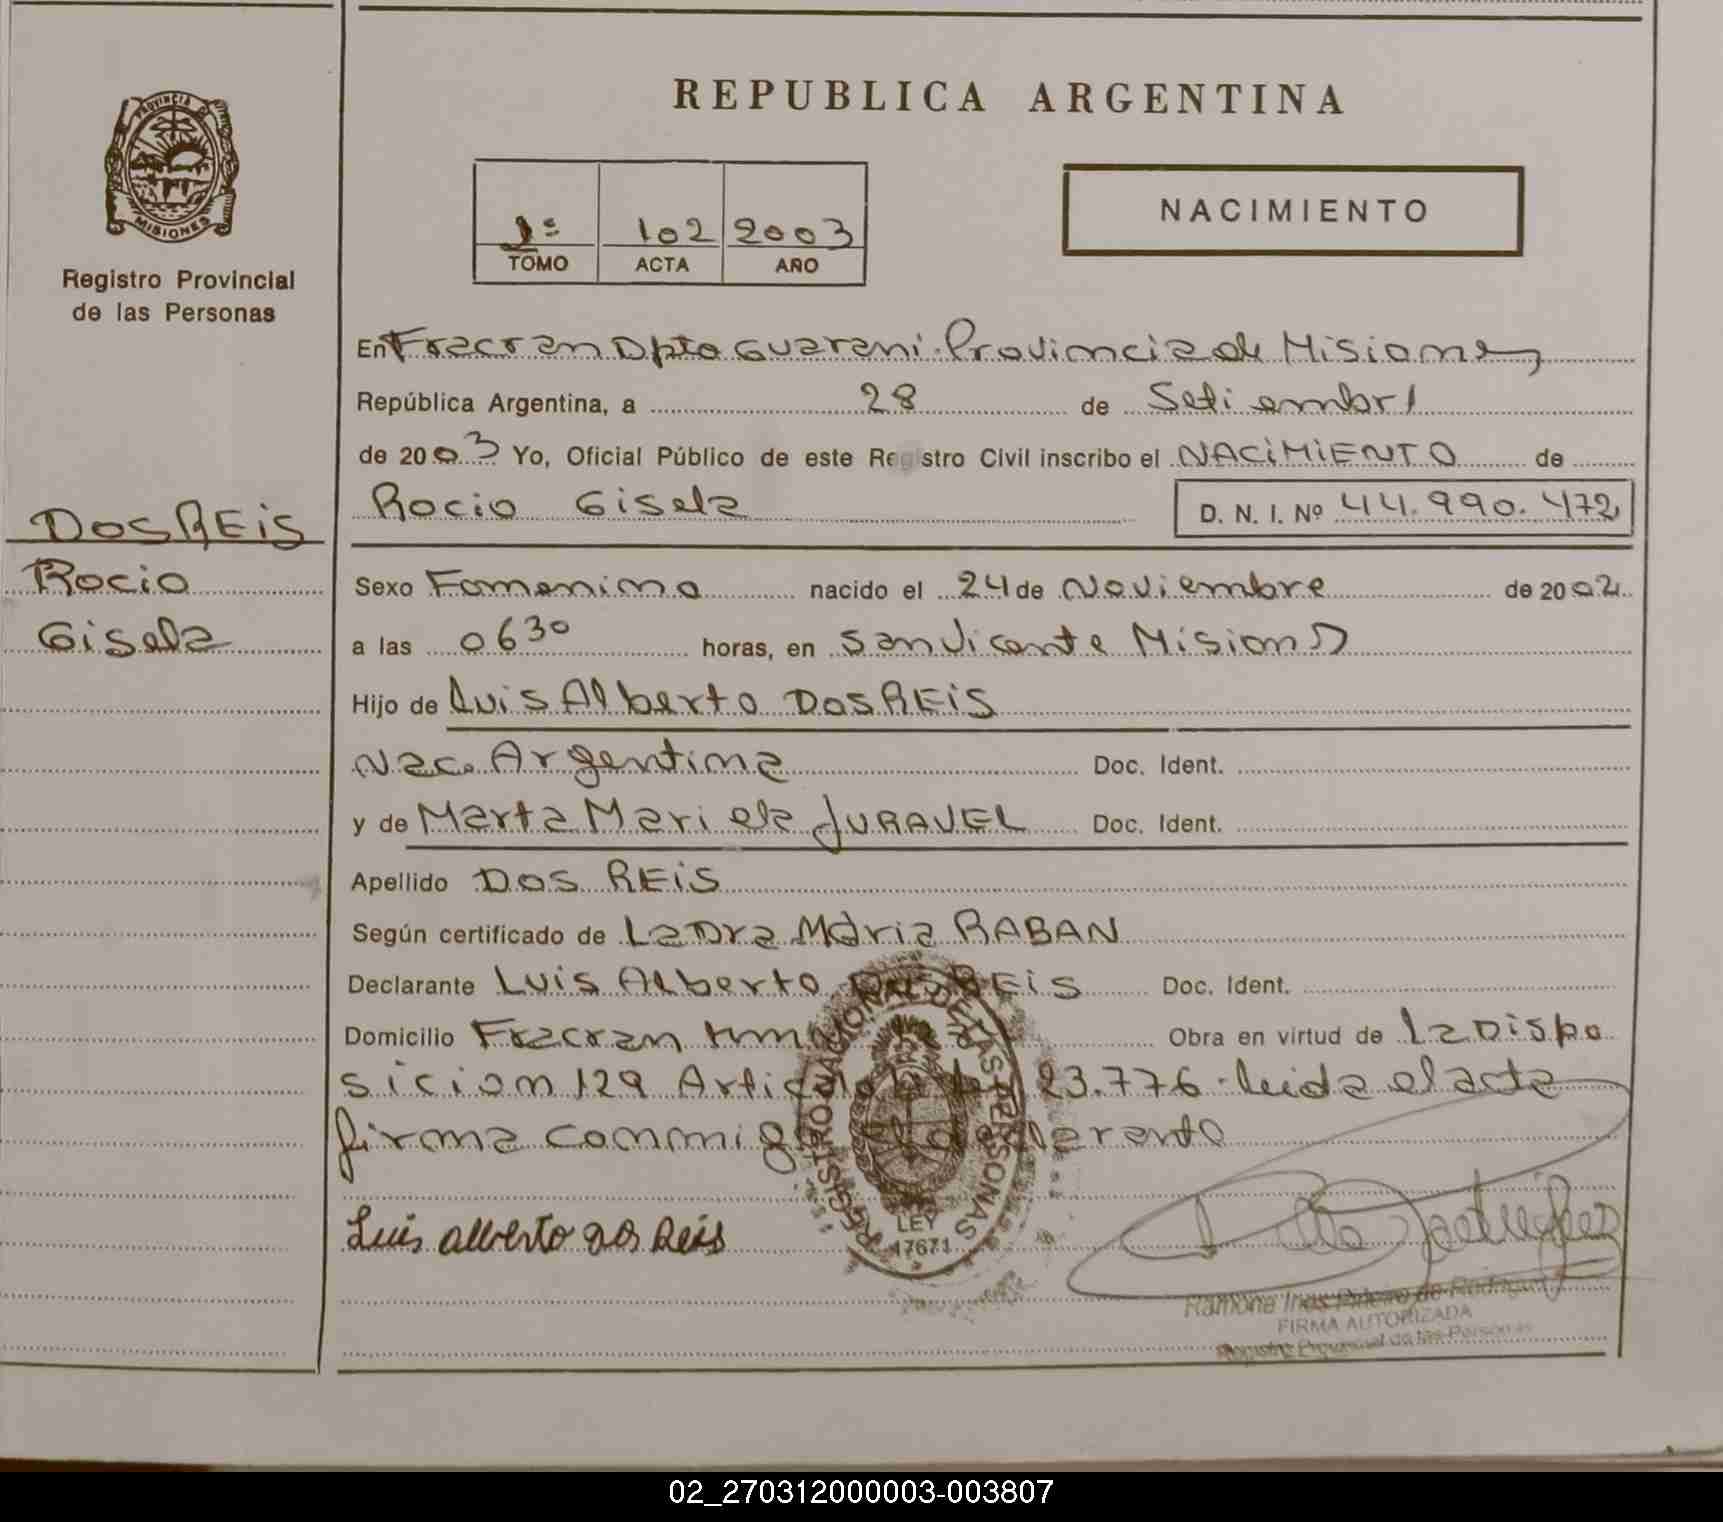 REPUBLICA ARGENTINA
PROVINCIA DE
MISIONES
Registro Provincial
de las Personas
1º 102 2003
TOMO ACTA AÑO
NACIMIENTO
En Fracran Dpto Guarani. Provincia de Misiones
República Argentina, a 28 de Setiembre
de 2003 Yo, Oficial Público de este Registro Civil inscribo el NACIMIENTO de
Rocio Gisela D. N. I. Nº 44.990.472
DOS REIS
Rocio
Gisela
Sexo Femenino nacido el 24 de Noviembre de 2002
a las 0630 horas, en San Vicente Misiones
Hijo de Luis Alberto DOS REIS
Nac. Argentina Doc. Ident.
y de Marta Mariela JURAVEL Doc. Ident.
Apellido DOS REIS
Según certificado de Laura Maria RABAN
Declarante Luis Alberto Dos REIS Doc. Ident.
Domicilio Fracran Obra en virtud de La Dispo
sicion 129 23.776. leida el acta
firma conmigo el declarante
REGISTRO NACIONAL DE LAS PERSONAS
LEY
17671
Luis alberto dos Reis
Ramona Ines Piñeiro de Rodriguez
FIRMA AUTORIZADA
Registro Provincial de las Personas
02_270312000003-003807